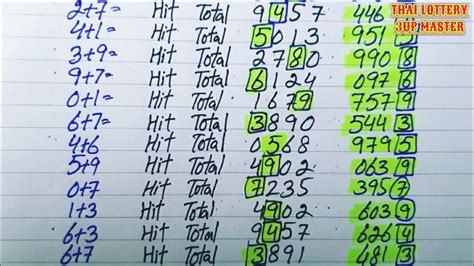 THAI LOTTERY
3UP MASTER
2+7= Hit Total 9457 446 4
4+1= Hit Total 5013 951 5
3+9= Hit Total 2780 990 8
9+7= Hit Total 6124 097 6
0+1= Hit Total 1679 757 9
6+7= Hit Total 3890 544 3
4+6 Hit Total 0568 979 5
5+9 Hit Total 4902 063 9
0+7 Hit Total 7235 395 7
1+3 Hit Total 4902 603 9
6+3 Hit Total 9457 626 4
6+7 Hit Total 3891 481 3